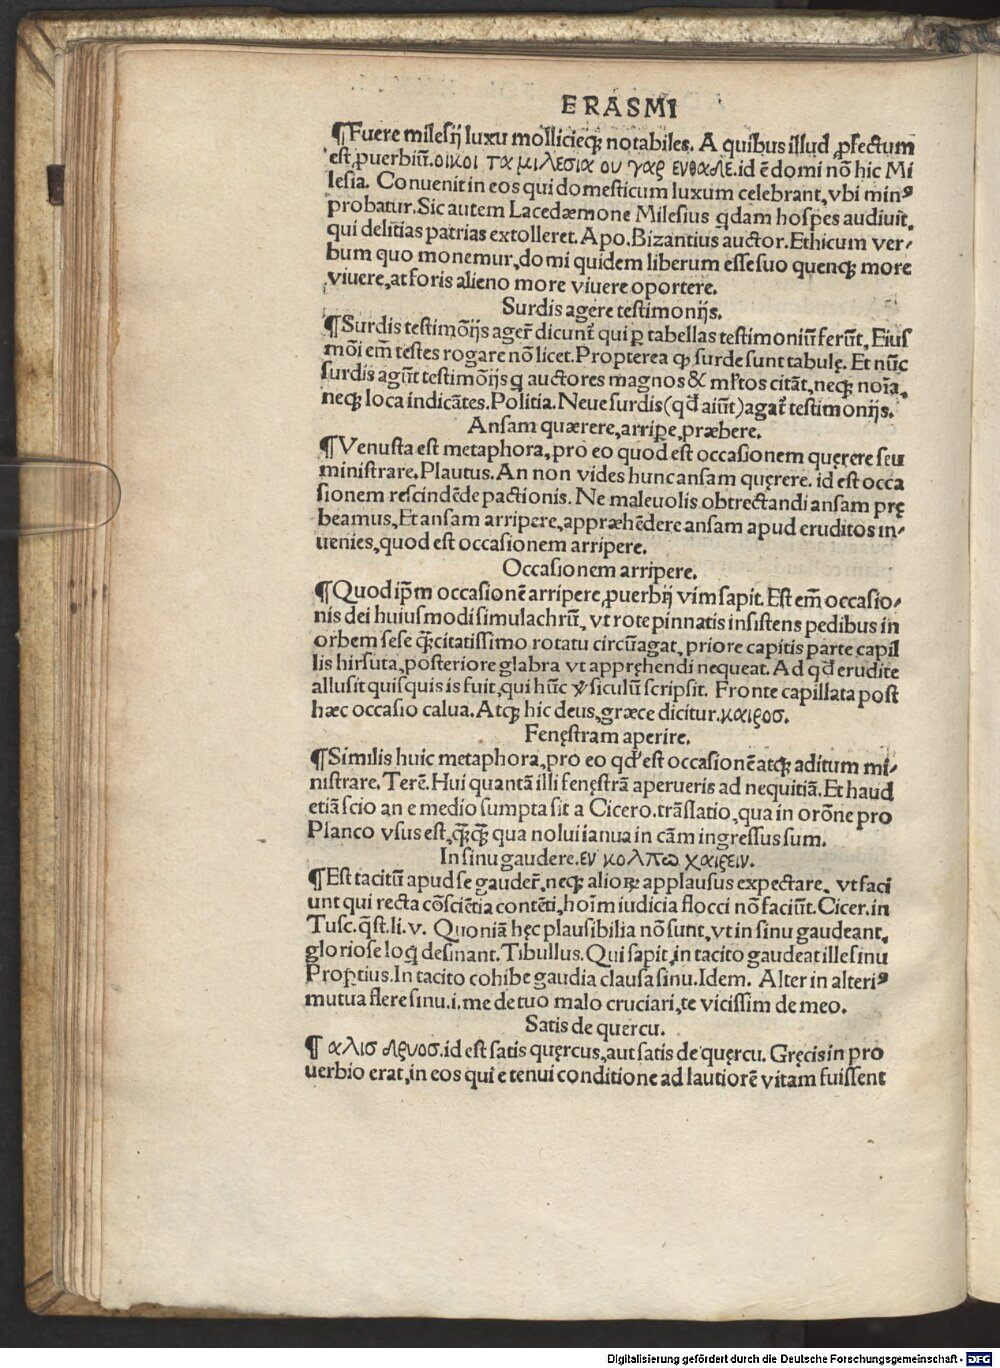 ERASMI
¶Fuere milesij luxu molliciéq; notabiles. A quibus illud ꝓfectum
est ꝓuerbiũ. οικοι τα μιλεσια ου γαρ ενθαδε. id ẽ domi nõ hic Mi
lesia. Conuenit in eos qui domesticum luxum celebrant, vbi minꝰ
probatur. Sic autem Lacedæmone Milesius q̄dam hospes audiuit,
qui delitias patrias extolleret. Apo. Bizantius auctor. Ethicum ver/
bum quo monemur, domi quidem liberum esse suo quenq; more
viuere, at foris alieno more viuere oportere.
Surdis agere testimonijs.
¶Surdis testimõijs ager̃ dicunt̃ qui ꝑ tabellas testimoniũ ferũt, Eius
mõi em̃ testes rogare nõ licet. Propterea ꝙ surde sunt tabulę. Et nũc
surdis agũt testimõijs q̄ auctores magnos & mr̃tos citãt, neq; noĩa,
neq; loca indicãtes. Politia. Neue surdis (qđ aiũt) agat̃ testimonijs.
Ansam quærere, arriꝑe, præbere.
¶Venusta est metaphora, pro eo quod est occasionem quęrere seu
ministrare. Plautus. An non vides hunc ansam quęrere. id est occa
sionem rescindẽde pactionis. Ne maleuolis obtrectandi ansam prę
beamus, Et ansam arripere, appræhẽdere ansam apud eruditos in/
uenies, quod est occasionem arripere.
Occasionem arripere.
¶Quod ip̃m occasionẽ arripere, ꝓuerbij vim sapit. Est em̃ occasio/
nis dei huiusmodi simulachrũ, vt rote pinnatis insistens pedibus in
orbem sese q̃citatissimo rotatu circũagat, priore capitis parte capil
lis hirsuta, posteriore glabra vt appręhendi nequeat. Ad qđ erudite
allusit quisquis is fuit, qui hũc ꝟsiculũ scripsit. Fronte capillata post
hæc occasio calua. Atq; hic deus, græce dicitur. καιροσ.
Fenęstram aperire.
¶Similis huic metaphora, pro eo qđ est occasionẽ atq; aditum mi/
nistrare. Terẽ. Hui quantã illi fenęstrã aperueris ad nequitiã. Et haud
etiã scio an e medio sumpta sit a Cicero. trãslatio, qua in orõne pro
Planco vsus est, q̃q̃ qua nolui ianua in cãm ingressus sum.
In sinu gaudere. εν κολπω χαιρειν.
¶Est tacitũ apud se gauder̃, neq; alioꝝ applausus expectare, vt faci
unt qui recta cõsciẽtia contẽti, hoĩm iudicia flocci nõ faciũt. Cicer. in
Tusc. q̃st. li. v. Quoniã hęc plausibilia nõ sunt, vt in sinu gaudeant,
gloriose loq̄ desinant. Tibullus. Qui sapit, in tacito gaudeat ille sinu
Proꝑtius. In tacito cohibe gaudia clausa sinu. Idem. Alter in alteriꝰ
mutua flere sinu. i. me de tuo malo cruciari, te vicissim de meo.
Satis de quercu.
¶ αλισ δρυοσ. id est satis quęrcus, aut satis de quęrcu. Gręcis in pro
uerbio erat, in eos qui e tenui conditione ad lautiorẽ vitam fuissent
Digitalisierung gefördert durch die Deutsche Forschungsgemeinschaft - DFG